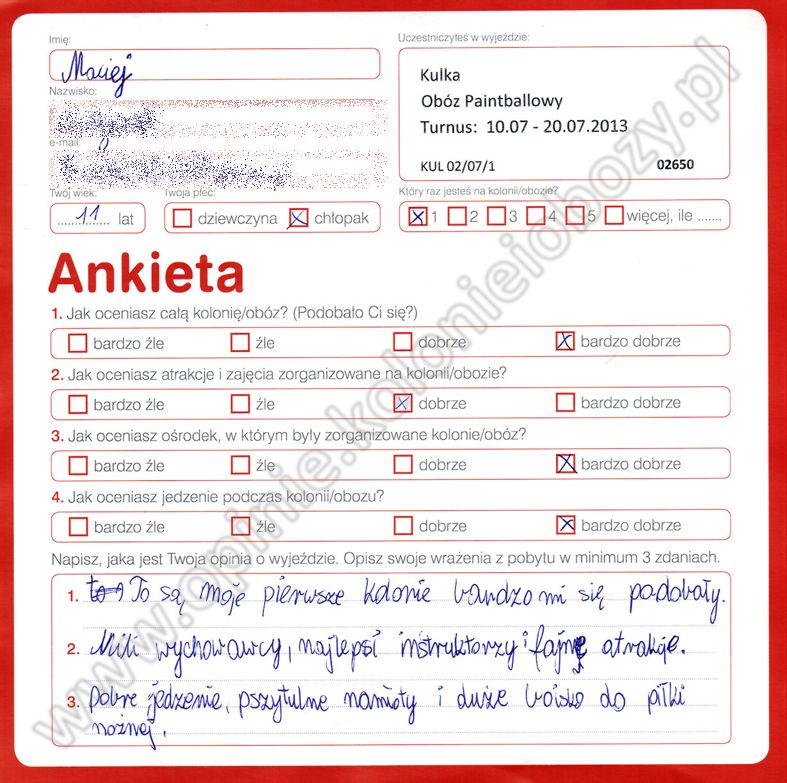 Imię:
Uczestniczyłeś w wyjeździe:
Maciej
Kulka
Obóz Paintballowy
Turnus: 10.07 - 20.07.2013
KUL 02/07/1 02650
Nazwisko:
e-mail:
Twój wiek:
Twoja płeć:
Który raz jesteś na kolonii/obozie?
11 lat
dziewczyna chłopak
1 2 3 4 5 więcej, ile .......
Ankieta
1. Jak oceniasz całą kolonię/obóz? (Podobało Ci się?)
bardzo źle źle dobrze bardzo dobrze
2. Jak oceniasz atrakcje i zajęcia zorganizowane na kolonii/obozie?
bardzo źle źle dobrze bardzo dobrze
3. Jak oceniasz ośrodek, w którym były zorganizowane kolonie/obóz?
bardzo źle źle dobrze bardzo dobrze
4. Jak oceniasz jedzenie podczas kolonii/obozu?
bardzo źle źle dobrze bardzo dobrze
Napisz, jaka jest Twoja opinia o wyjeździe. Opisz swoje wrażenia z pobytu w minimum 3 zdaniach.
1. To są moje pierwsze kolonie bardzo mi się podobały.
2. Mili wychowawcy, najlepsi instruktorzy i fajne atrakcje.
3. Dobre jedzenie, pszytulne namioty i duże boisko do piłki
nożnej.
www.opinie.kolonieiobozy.pl